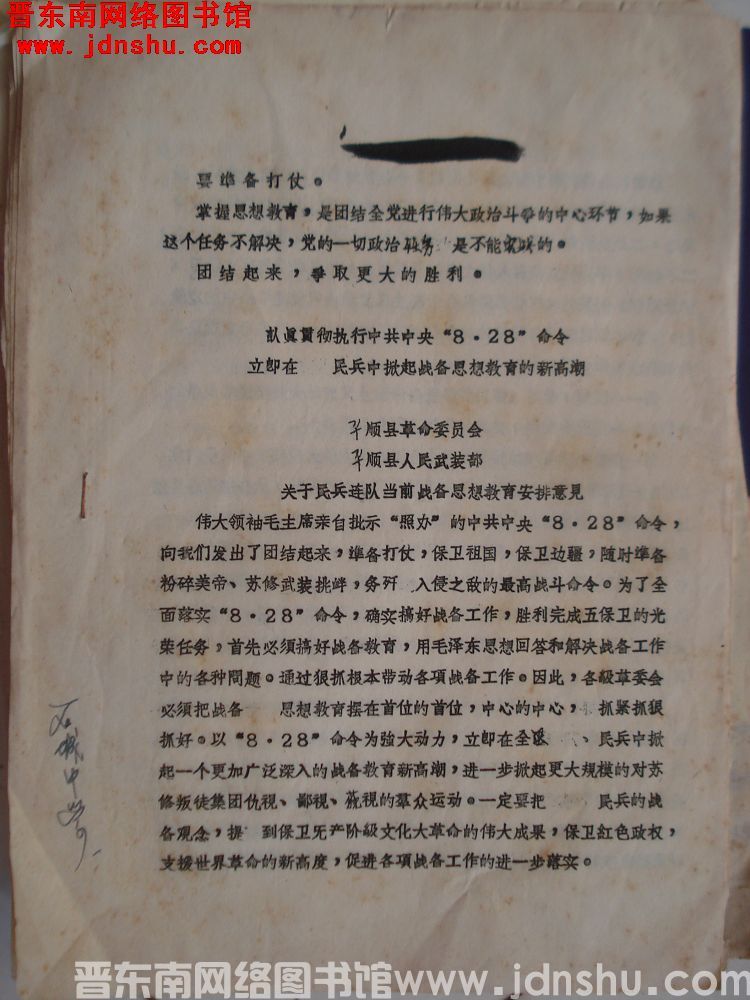 晋东南网络图书馆
www.jdnshu.com
要準备打仗。
掌握思想教育，是团结全党进行伟大政治斗争的中心环节，如果
这个任务不解决，党的一切政治任务 是不能完成的。
团结起来，争取更大的胜利。
认眞貫彻执行中共中央“8·28”命令
立即在 民兵中掀起战备思想教育的新高潮
平顺县革命委员会
平顺县人民武装部
关于民兵连队当前战备思想教育安排意見
伟大领袖毛主席亲自批示“照办”的中共中央“8·28”命令，
向我们发出了团结起来，準备打仗，保卫祖国，保卫边疆，随时準备
粉碎美帝、苏修武装挑衅，务歼 入侵之敌的最高战斗命令。为了全
面落实“8·28”命令，确实搞好战备工作，胜利完成五保卫的光
荣任务，首先必须搞好战备教育，用毛泽东思想回答和解决战备工作
中的各种問题。通过狠抓根本带动各項战备工作。因此，各級革委会
必须把战备 思想教育摆在首位的首位，中心的中心， 抓紧抓狠
抓好。以“8·28”命令为強大动力，立即在全 、民兵中掀
起一个更加广泛深入的战备教育新高潮，进一步掀起更大规模的对苏
修叛徒集团仇视、鄙視、蔑視的羣众运动。一定要把 民兵的战
备观念，提 到保卫无产阶級文化大革命的伟大成果，保卫紅色政权，
支援世界革命的新高度，促进各項战备工作的进一步落实。
石城中学
晋东南网络图书馆www.jdnshu.com